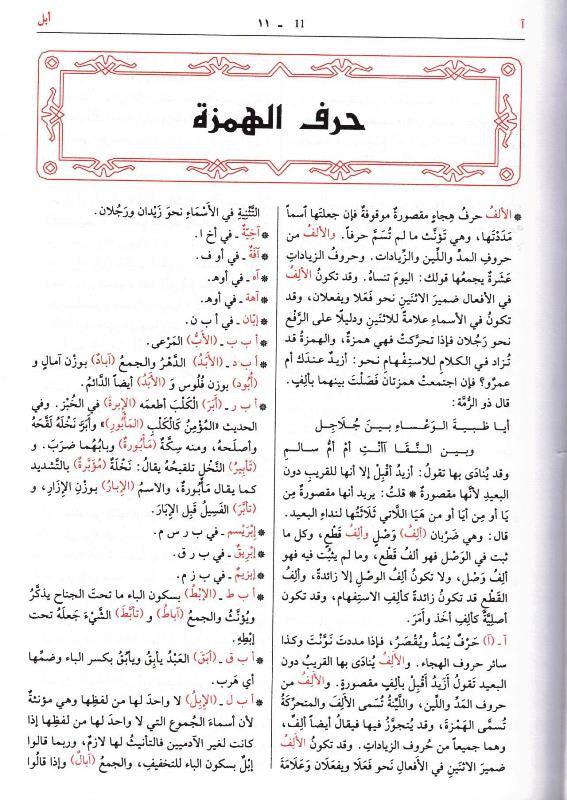 آ
11 - ١١
أبل
حرف الهمزة
* الألِفُ حرفُ هِجاءٍ مقصورةٌ موقوفةٌ فإن جعلتَها اسماً
مَدَدْتَها، وهي تؤنَّث ما لم تُسَمَّ حرفاً. والألِفُ من
حروفِ المدِّ واللِّين والزِّيادات. وحروفُ الزياداتِ
عَشَرةٌ يجمعُها قولك: اليومَ تنساهُ. وقد تكونُ الألِفُ
في الأفعال ضميرَ الاثنَينِ نحو فَعَلا ويفعلان، وقد
تكونُ في الأسماءِ علامةً للاثنَينِ ودليلا على الرَّفْعِ
نحو رَجُلان فإذا تحرَّكتْ فهي همزةٌ، والهمزةُ قد
تُزاد في الكلامِ للاستِفهامِ نحو: أزيدٌ عندَك أم
عمرٌو؟ فإن اجتمعتْ همزتانِ فَصَلْتَ بينهما بألِفٍ.
قال ذو الرُّمَّة:
أيا ظَبيةَ الوَعْساءِ بينَ جُلاجِلٍ
وبينَ النَّقا آأنْتِ أمْ أمُّ سالمِ
وقد يُنادَى بها تقولُ: أزيدُ أقْبِلْ إلا أنها للقريبِ دون
البعيدِ لأنَّها مقصورةٌ * قلتُ: يريد أنها مقصورةٌ مِن
يَا أو مِن أيَا أو من هَيَا اللَّاتي ثَلاثَتُها لنداءِ البعيد.
قال: وهي ضَرْبان (ألِفُ) وَصْلٍ وألِفُ قَطْعٍ، وكل ما
ثبت في الوَصْل فهو ألفُ قَطْع، وما لم يثْبُت فيه فهو
ألِف وَصْل، ولا تكونُ ألِفُ الوصْل إلا زائدةً، وألِفُ
القَطْعِ قد تكونُ زائدةً كألِفِ الاستِفهام، وقد تكون
أصليَّةً كألِفِ أخَذَ وأمَرَ.
آ - (آ) حَرْفٌ يُمَدُّ ويُقْصَرُ، فإذا مددتَ نوَّنْتَ وكذا
سائر حروف الهجاء. والألِفُ يُنادَى بها القريبُ دون
البعيد تَقولُ أزَيْدُ أقْبِلْ بألِفٍ مقصورةٍ. والألِفُ من
حروفِ المدِّ واللِّينِ، واللَّيِّنةُ تُسمى الألِفَ والمتحركةُ
تُسمَّى الهَمْزةَ، وقد يُتجوَّزُ فيها فيقالُ أيضاً ألِفٌ،
وهما جميعاً من حُروف الزياداتِ. وقد تكونُ الألِفُ
ضميرَ الاثنين في الأفعال نحو فَعَلا ويفعلَان وعَلامَةَ
التَّثْنِيَةِ في الأسْمَاءِ نحوَ زَيْدان ورَجُلان.
* آخِيَّةٌ - في أخ ا.
* آفَةٌ - في أو ف.
* آه - في أوه.
* آهة - في أوه.
* إبّان - في أ ب ن.
* أ ب ب - (الأبُّ) المَرْعى.
* أ ب د - (الأبَدُ) الدَّهْرُ والجمعُ (آبادٌ) بوزْن آمالٍ و
(أُبُود) بوزن فُلُوس وَ (الأبَدُ) أيضاً الدَّائمُ.
* أ ب ر - (أبَرَ) الكَلْبَ أطعمَه (الإبرةَ) في الخُبْز. وفي
الحديث «المؤمِنُ كالْكَلْبِ (المَأبُورِ)» وأبَرَ نَخْلَهُ لَقَّحَهُ
وأصلَحَهُ، ومنه سِكَّةٌ (مأبُورةٌ) وبابُهُما ضرَبَ. و
(تأبِيرُ) النَّخْلِ تلقيحُهُ يقالُ: نَخْلَةٌ (مُؤَبَّرةٌ) بالتَّشْديد
كما يقال مَأبُورةٌ، والاسمُ (الإبارُ) بوزْنِ الإزَارِ، و
(تأبَّرَ) الفَسِيلُ قَبِلَ الإبَارَ.
* إبْرَيْسم - في ب ر س م.
* إبْرِيقٌ - في ب ر ق.
* إبزيمٌ - في ب ز م.
* أ ب ط - (الإبْطُ) بسكون الباء ما تحتَ الجناح يذكَّرُ
ويُؤنَّثُ والجمعُ (آباطٌ) و (تأبَّطَ) الشَّيْءَ جَعلَهُ تحت
إبْطِهِ.
* أ ب ق - (أبَقَ) العَبْدُ يأبِقُ ويأبُقُ بكسرِ الباء وضمِّها
أي هَرب.
* أ ب ل - (الإبِلُ) لا واحدَ لها من لفظِها وهي مؤنثةٌ
لأن أسماءَ الجُموعِ التي لا واحدَ لها من لفظِها إذا
كانت لغير الآدميين فالتأنيثُ لها لازمٌ، وربما قالوا
إبْلٌ بسكون الباء للتخفيفِ، والجمعُ (آبالٌ) وإذا قالُوا